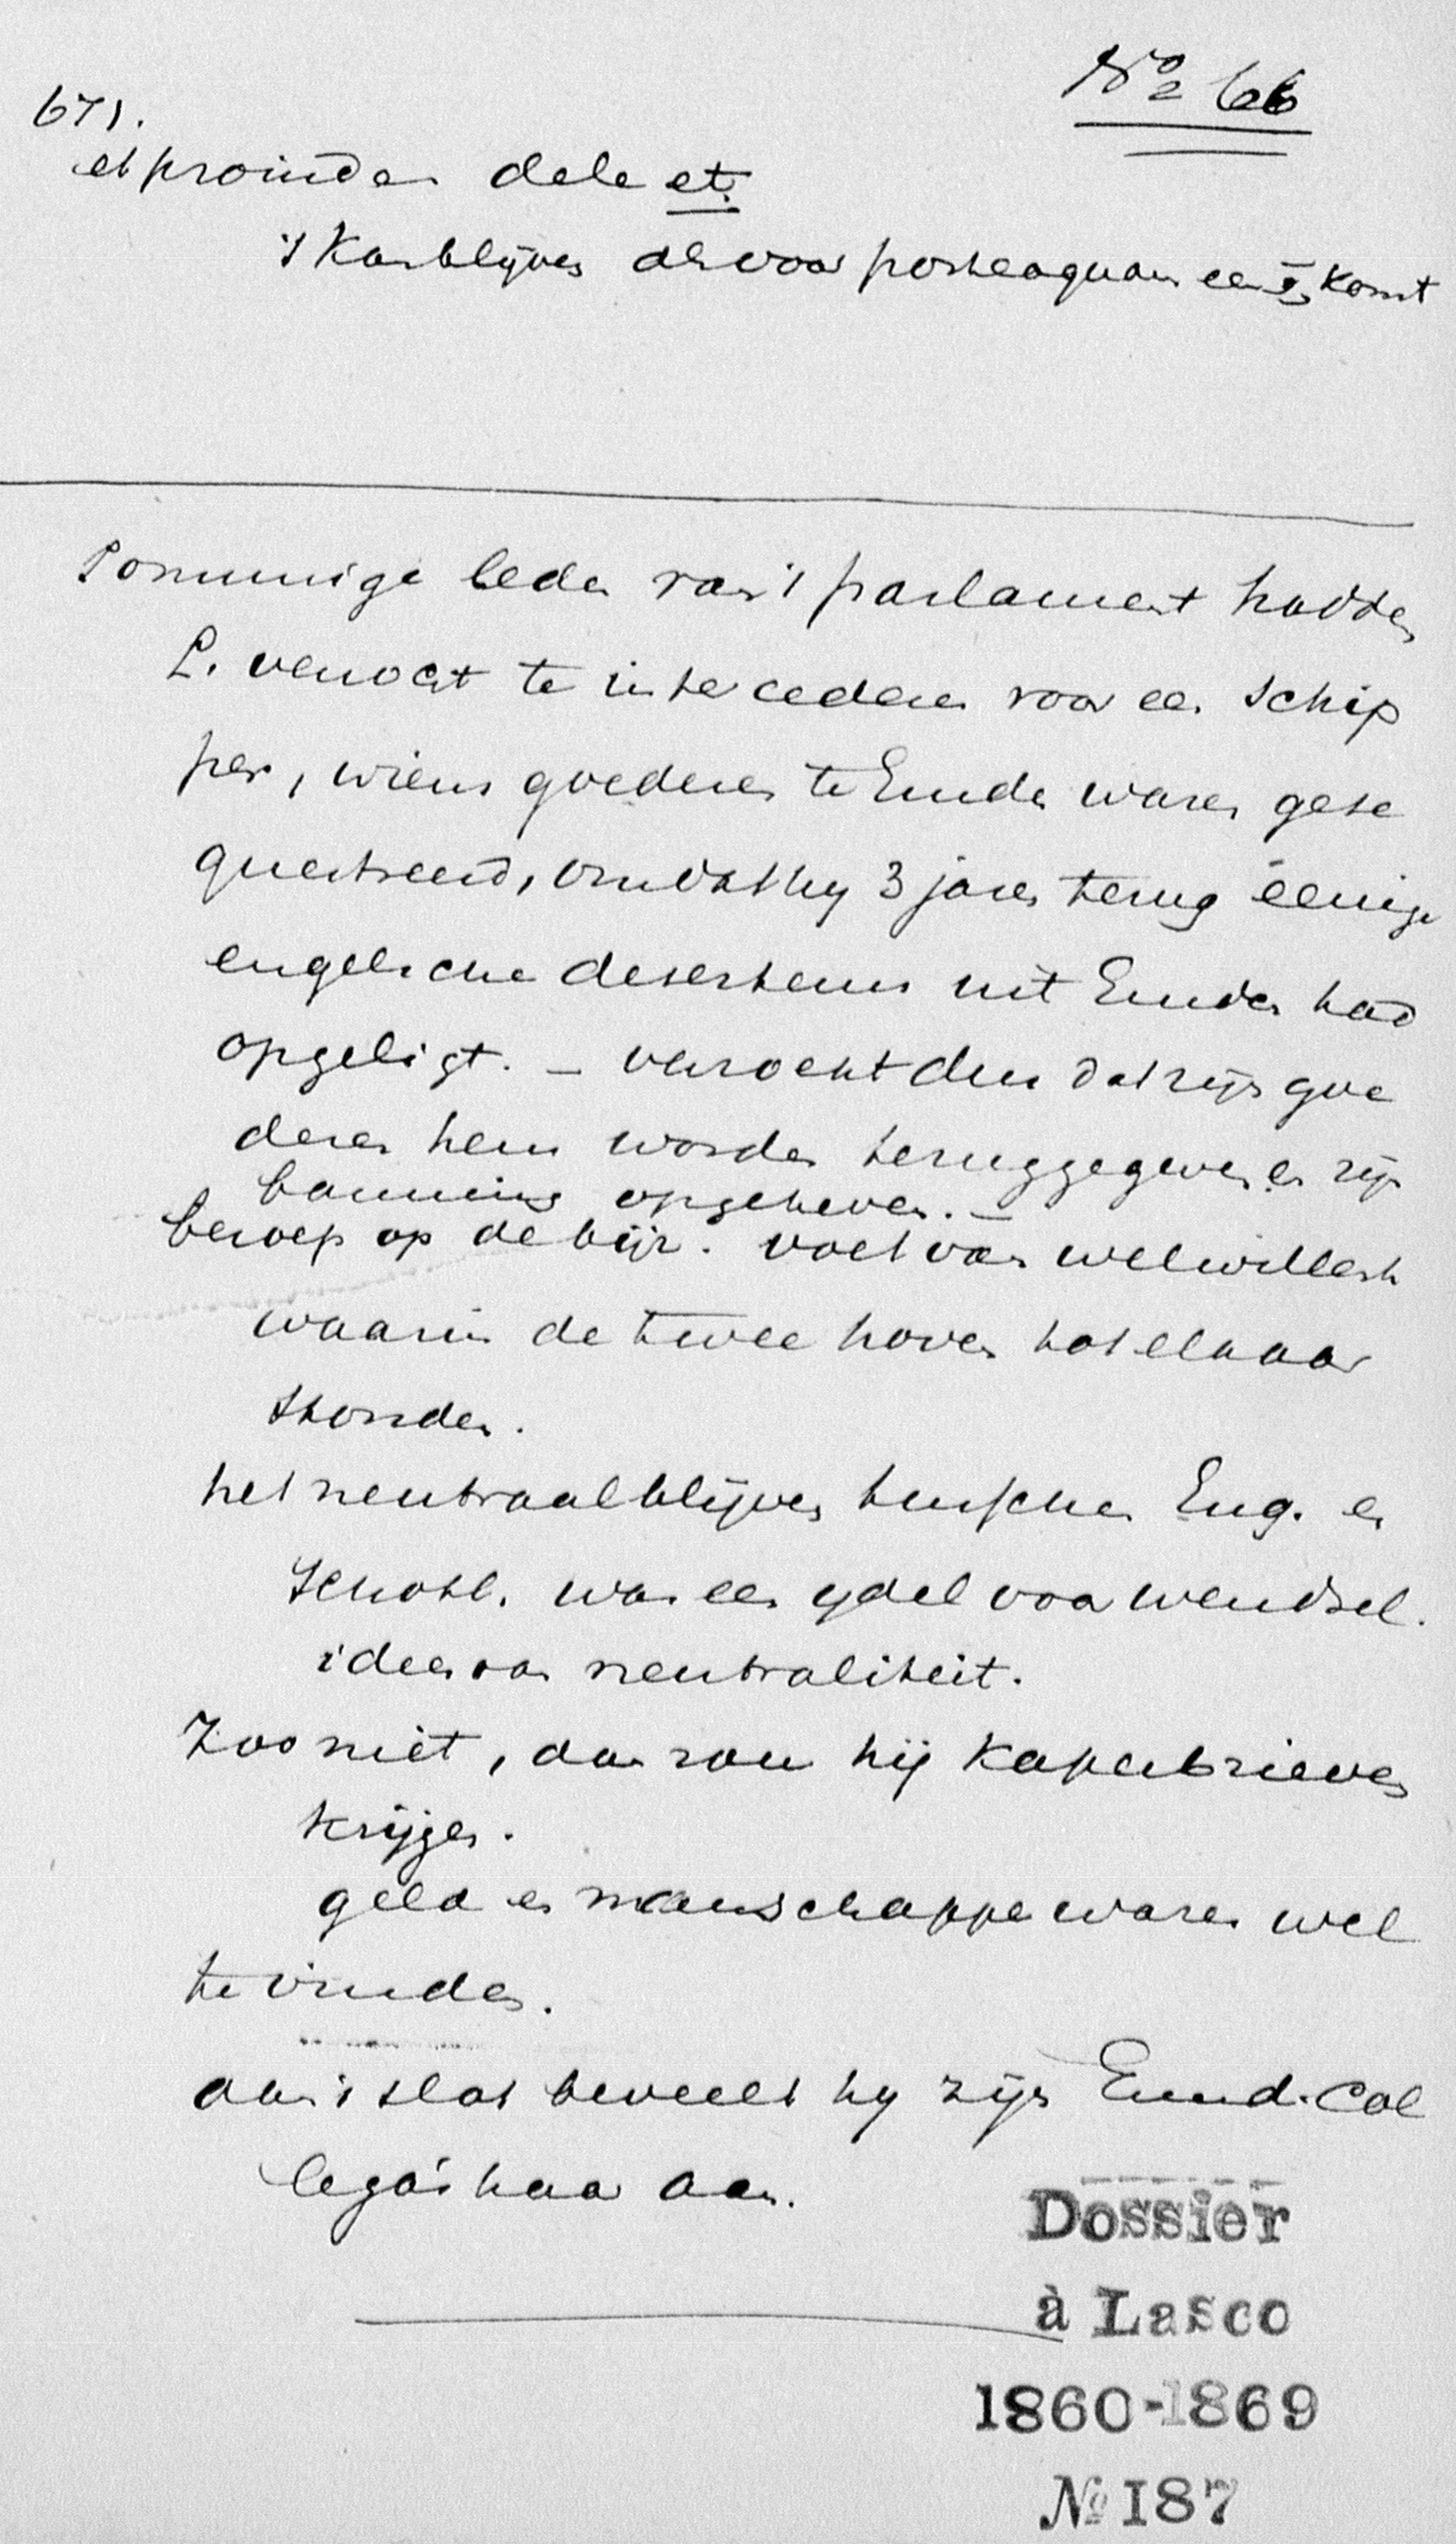 No 66
671.
et proinde dele et.
't Kan blijven als voor posteaquam een ; komt
Sommige leden van 't parlament hadden
L. verzocht te intercederen voor een schip
per, wiens goederen te Emden waren gese
questreerd, omdat hy 3 jaren terug eenige
engelsche deserteurs uit Emden had
opgeligt. – verzoekt dus dat zijn goe
deren hem worden teruggegeven en zijn
banning opgeheven. –
beroep op de bijz. voet van welwillendh
waarin de twee hoven tot elkaar
stonden.
het neutraal blijven tusschen Eng. en
Schotl. was een ydel voorwendsel.
idee van neutraliteit.
Zoo niet, dan zou hij Kaperbrieven
krijgen.
geld en manschappen waren wel
te vinden.
aan 't slot beveelt hy zijn Emd. Col
lega's haar aan.
Dossier
à Lasco
1860-1869
No 187